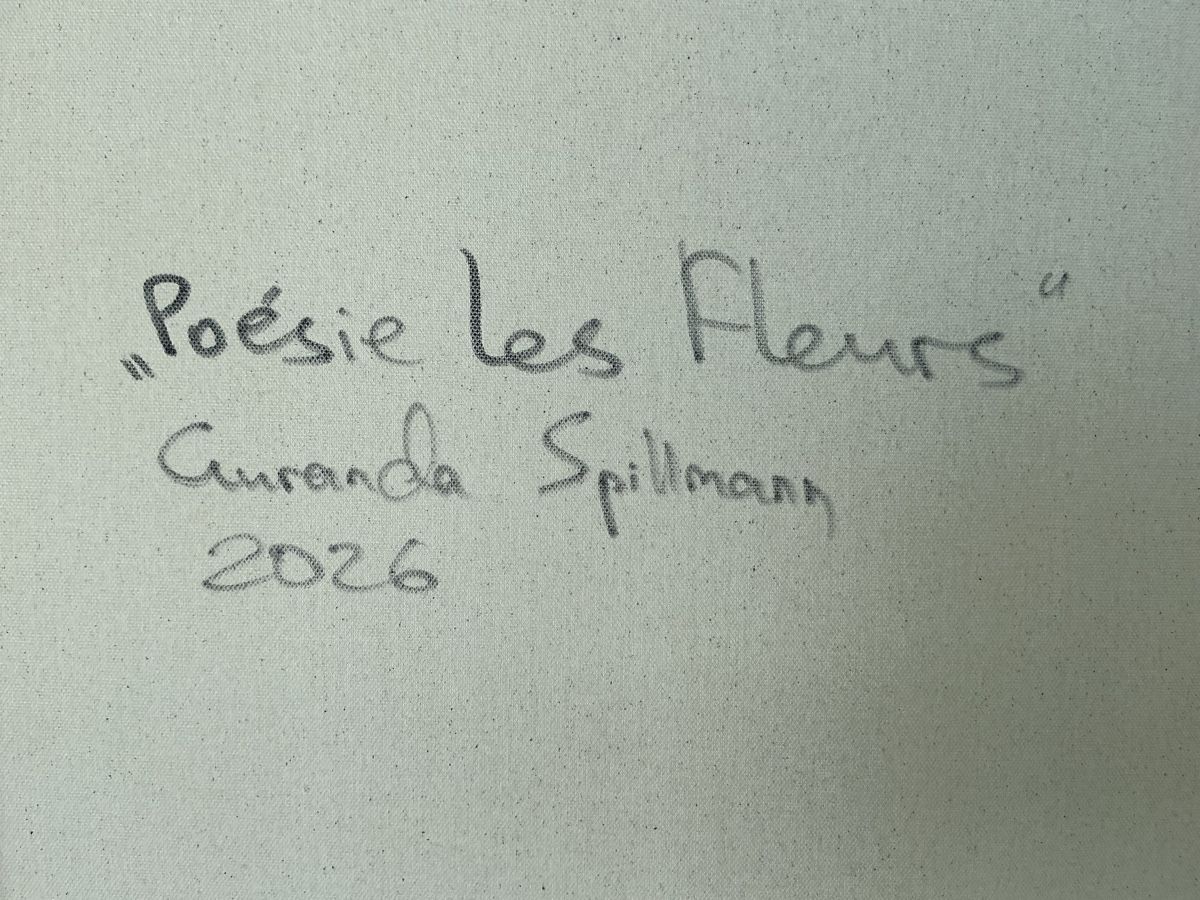 „Poésie Les Fleurs“
Guranda Spillmann
2026